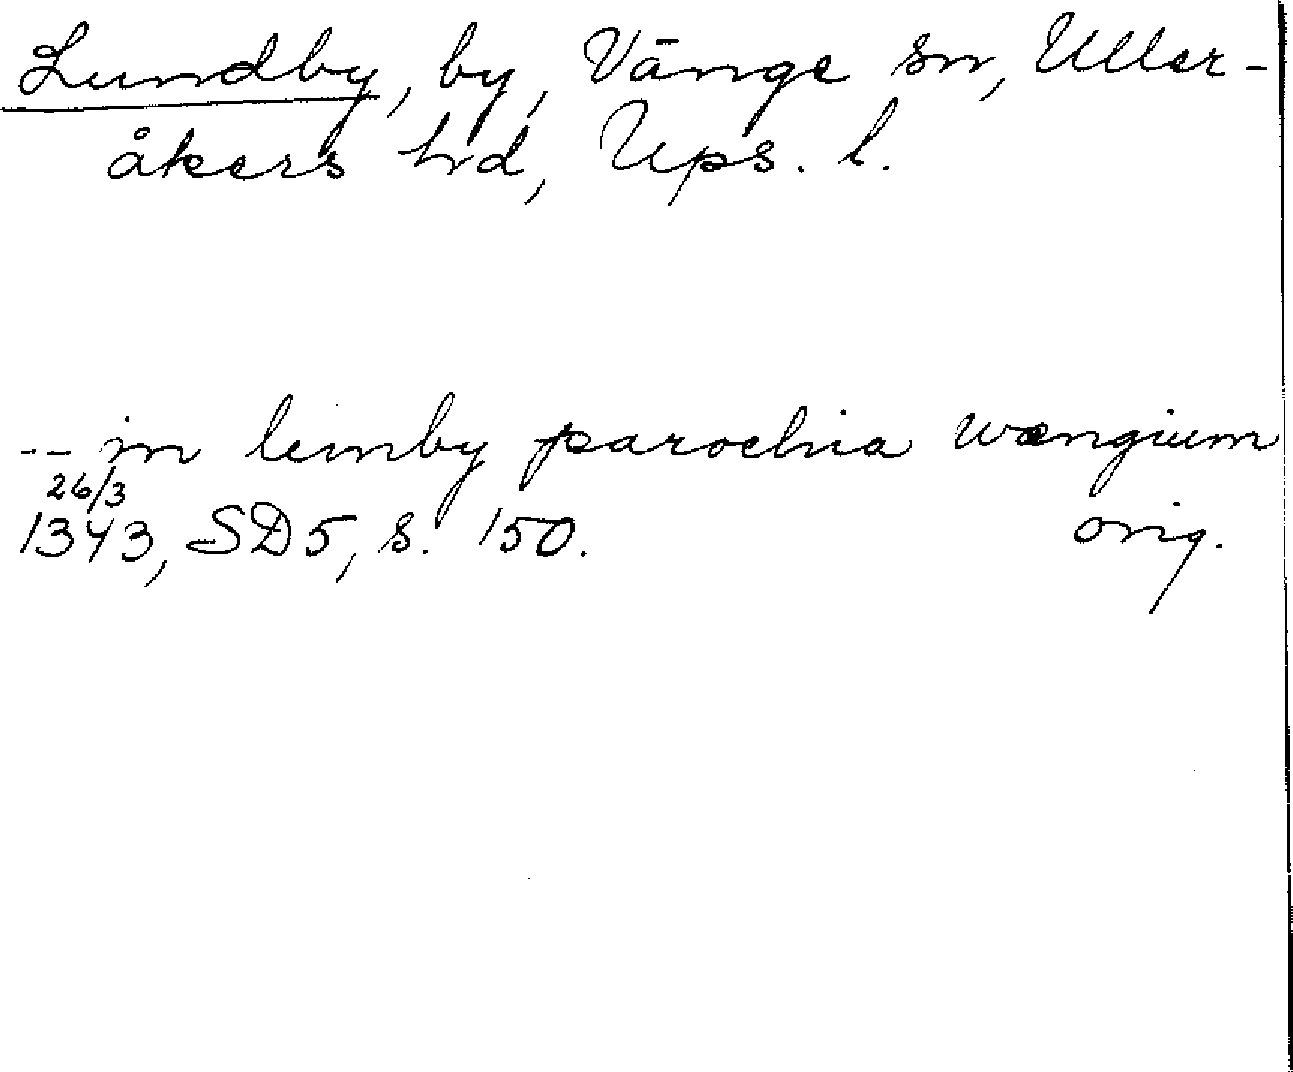 Lundby, by, Vänge sn, Uller-
åkers hd, Ups. l.
-- in lunby parochia wængium
26/3
1343, SD5, s. 150. orig.